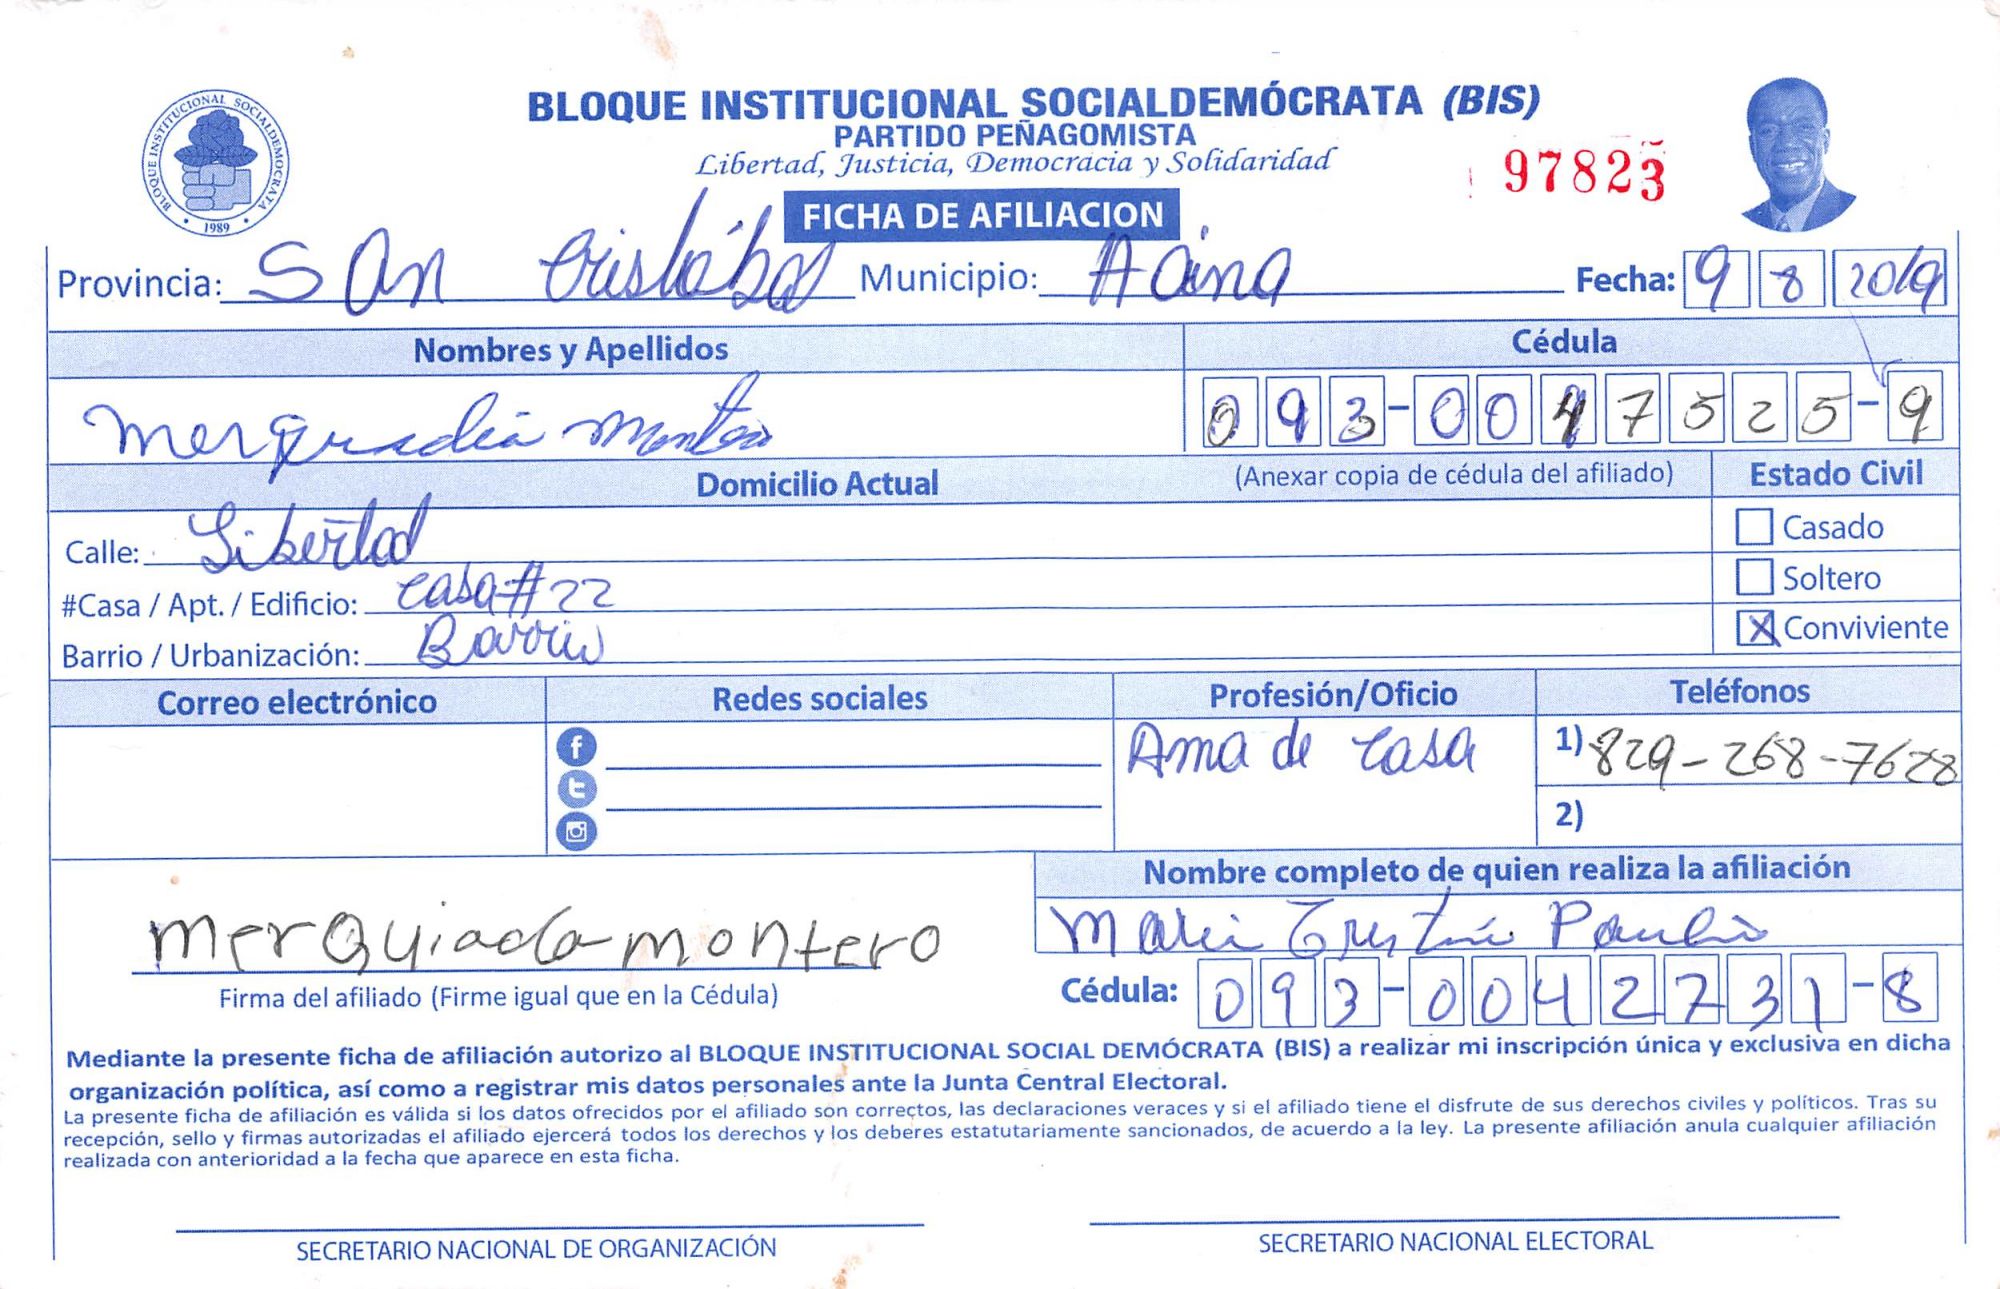 BLOQUE INSTITUCIONAL SOCIALDEMÓCRATA (BIS)
PARTIDO PEÑAGOMISTA
Libertad, Justicia, Democracia y Solidaridad
97823
BLOQUE INSTITUCIONAL SOCIALDEMOCRATA
1989
FICHA DE AFILIACION
Provincia: San Cristóbal Municipio: Haina Fecha: 9 8 2019
Nombres y Apellidos Cédula
Montero 093-0047525-9
Domicilio Actual (Anexar copia de cédula del afiliado) Estado Civil
Calle: Libertad Casado
#Casa / Apt. / Edificio: casa # 22 Soltero
Barrio / Urbanización: Barrio X Conviviente
Correo electrónico Redes sociales Profesión/Oficio Teléfonos
Ama de casa 1) 829-268-7628
2)
Nombre completo de quien realiza la afiliación
merquiada montero
Firma del afiliado (Firme igual que en la Cédula)
Cédula: 093-0042731-8
Mediante la presente ficha de afiliación autorizo al BLOQUE INSTITUCIONAL SOCIAL DEMÓCRATA (BIS) a realizar mi inscripción única y exclusiva en dicha
organización política, así como a registrar mis datos personales ante la Junta Central Electoral.
La presente ficha de afiliación es válida si los datos ofrecidos por el afiliado son correctos, las declaraciones veraces y si el afiliado tiene el disfrute de sus derechos civiles y políticos. Tras su
recepción, sello y firmas autorizadas el afiliado ejercerá todos los derechos y los deberes estatutariamente sancionados, de acuerdo a la ley. La presente afiliación anula cualquier afiliación
realizada con anterioridad a la fecha que aparece en esta ficha.
SECRETARIO NACIONAL DE ORGANIZACIÓN SECRETARIO NACIONAL ELECTORAL